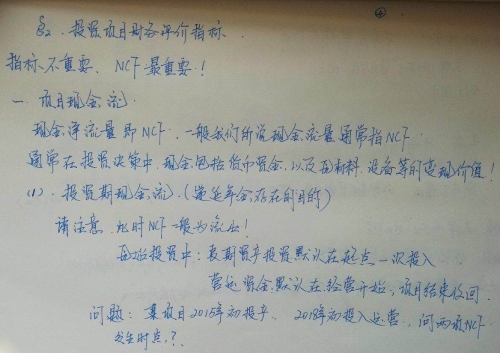 ④
§2. 投资项目财务评价指标.
指标不重要、NCF最重要！
一 项目现金流.
现金净流量即NCF. 一般我们所说现金流量通常指NCF.
通常在投资决策中, 现金包括货币资金, 以及原材料、设备等的变现价值！
(1). 投资期现金流. (递延年金存在的目的)
请注意, 此时NCF一般为流出！
原始投资中：长期资产投资默认在起点一次投入
营运资金默认在经营开始, 项目结束收回.
问题：某项目2015年初投产、2018年初投入运营, 问两项NCF
发生时点.？